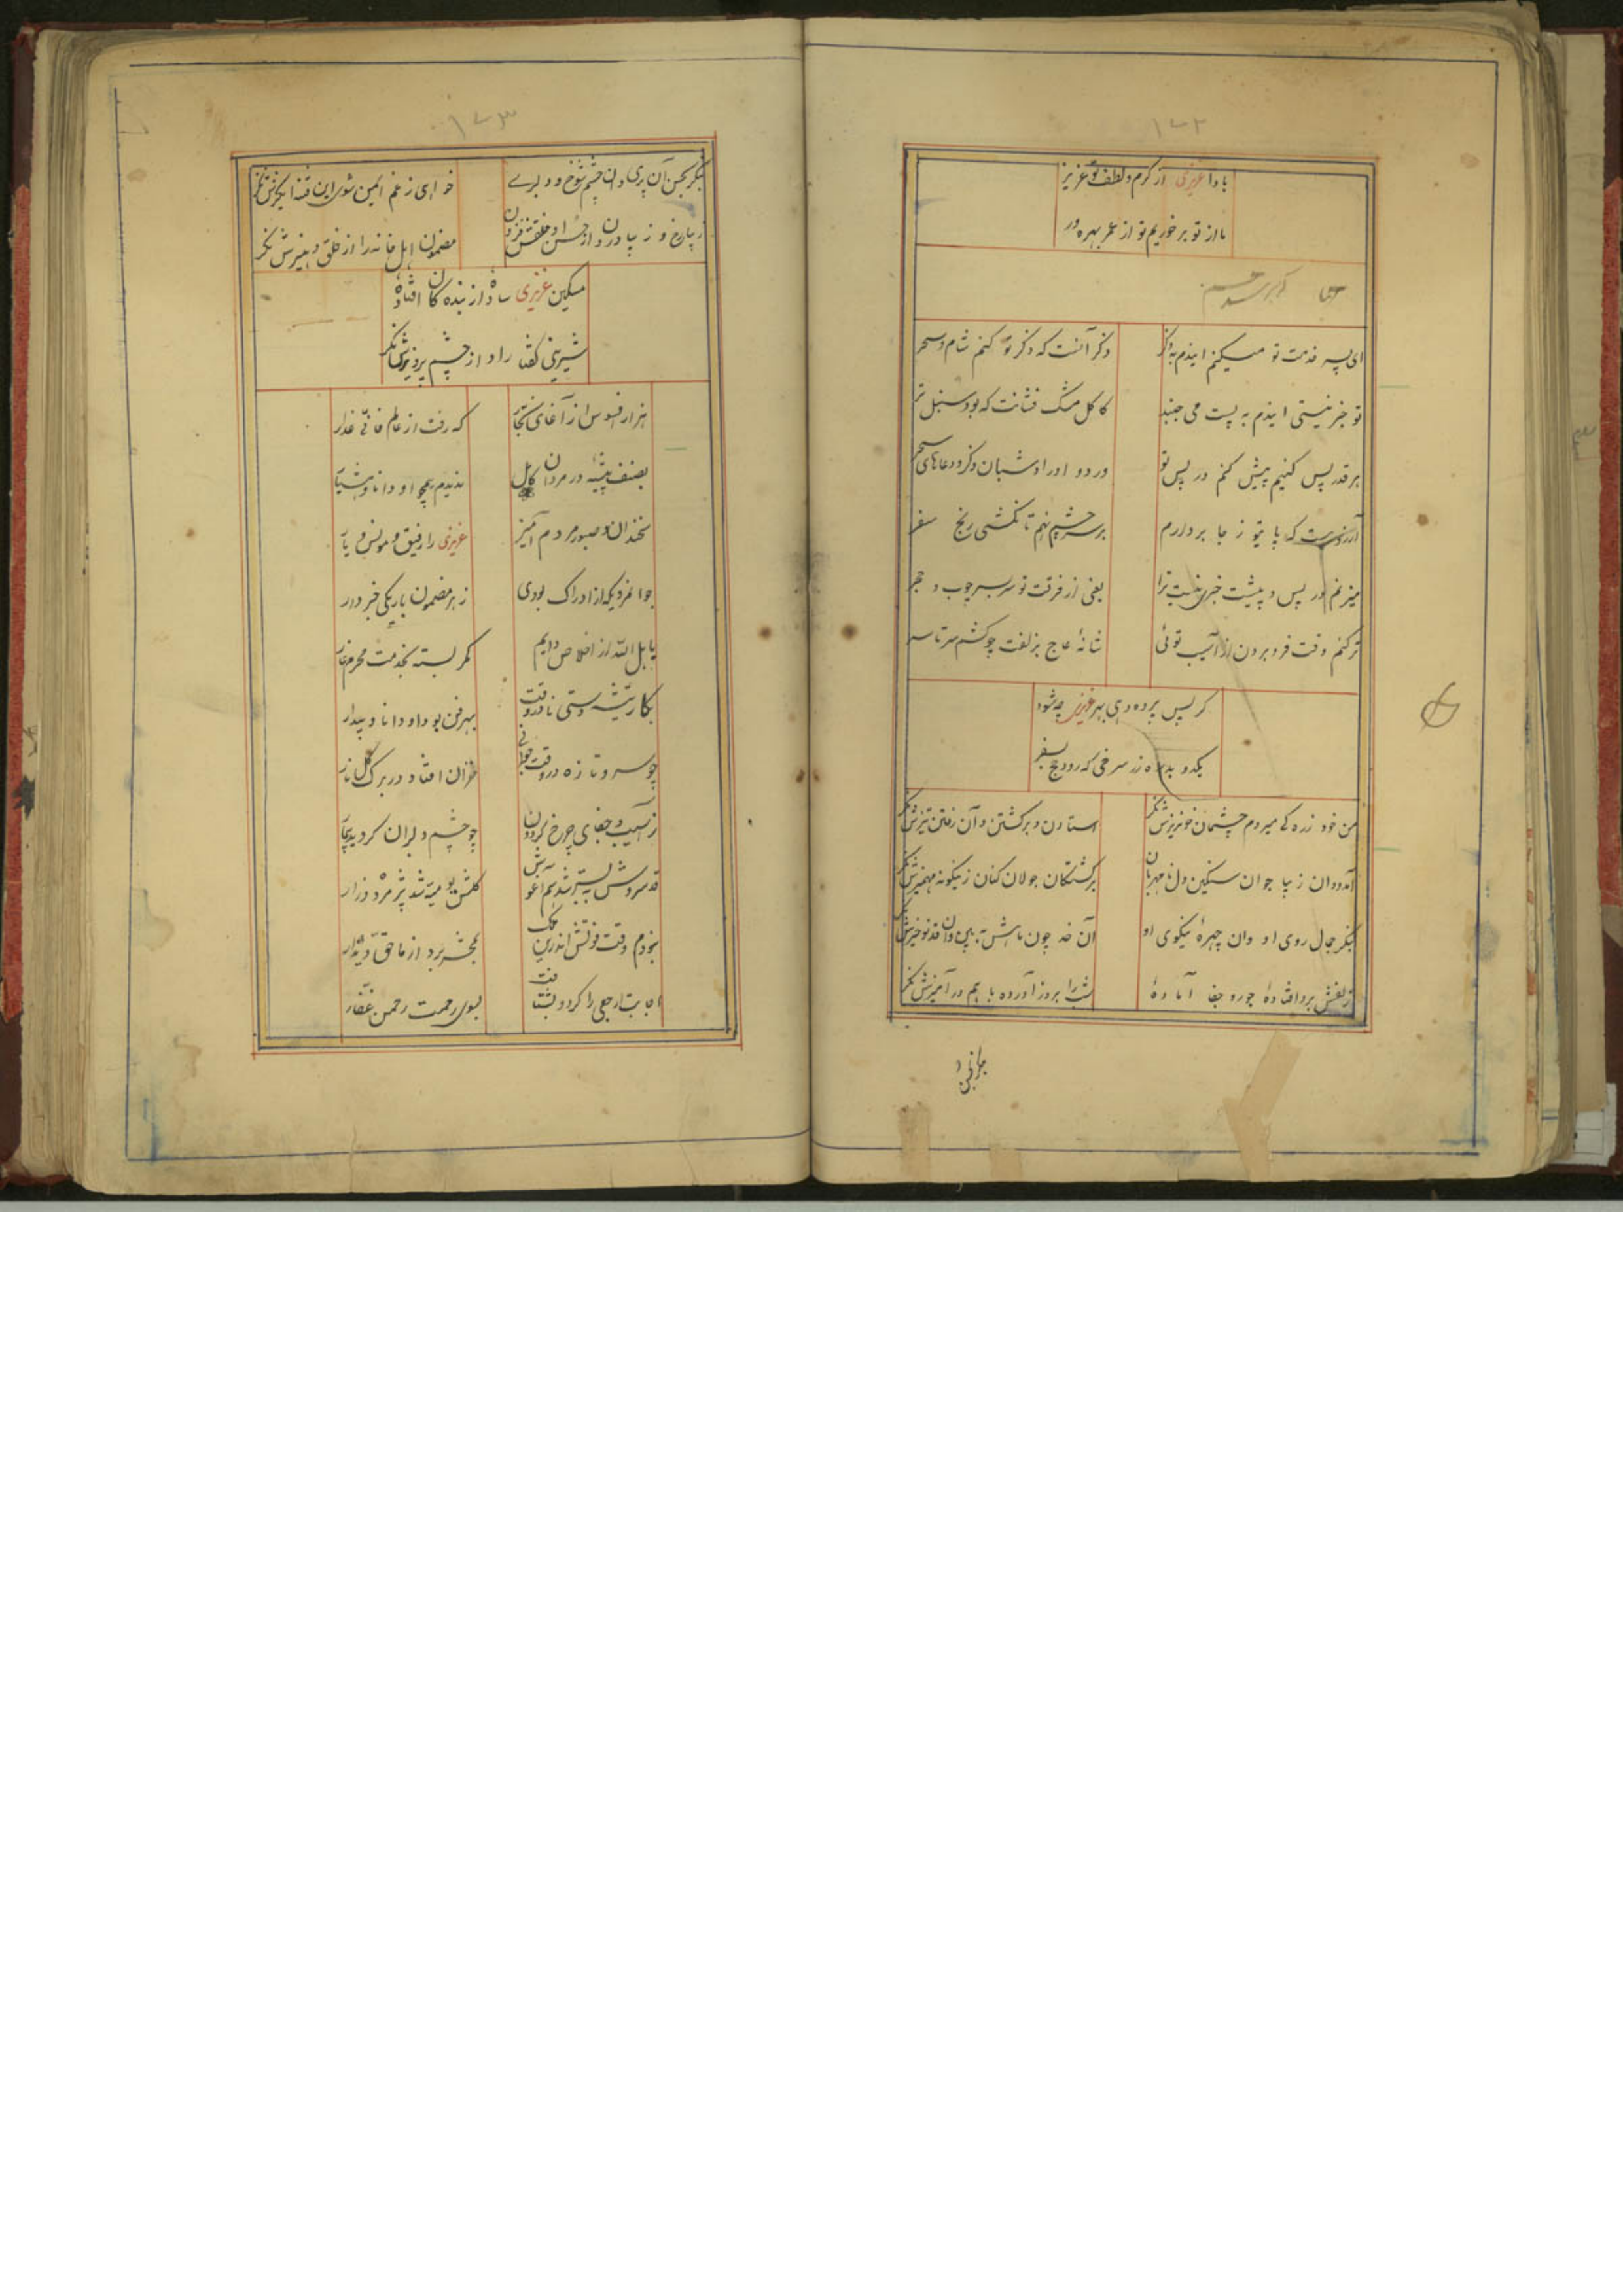 ۱۷۲
بادا عزیزی از کرم و لطف تو عزیز
ما از تو برخوریم تو از عمر بهره ور
ای پسر خدمت تو میکنم ایندم بذکر
ذکر آنست که ذکر تو کنم شام و سحر
تو خبر نیستی ایندم به پست می جنبد
کاکل مشک فشانت که بود سنبل تر
هر قدر پس کنیم پیش کنم در پس تو
ورد و اوراد شبان و ذکر و دعاهای سحر
آرزوست که پا تو ز جا بردارم
بر سر چشم نهم تا نکشی رنج سفر
میزنم در پس و پیشت خبری نیست ترا
یعنی از فرقت تو سر بسر چوب و حجر
ترکنم وقت فرو بردن از آسیب توئی
شانهٔ عاج بزلفت چو کشم سرتاسر
گر پس پرده دهی بهر عزیزی چه شود
یکدو بدره زر سرخی که رود حج بسفر
من خود ز ره کی میروم چشمان خونریزش نگر
استادن و برگشتن و آن رفتن تیزش نگر
آمد دوان زیبا جوان سنگین دل نامهربان
برگشتگان جولان کنان زینگونه مهمیزش نگر
بنگر جمال روی او وان چهرهٔ نیکوی او
آن خد چون ماهش ببین وان قد نوخیزش نگر
زلفش برو افتادهٔ جور و جفا آمادهٔ
شب را بروز آورده با هم در آمیزش نگر
۱۷۳
بنگر بحسن آن پری وان چشم شوخ و دلبری
خواهی ز غم ایمن شوی این فتنه انگیزش نگر
مضمون اهل خانه را از خلق و هنرش نگر
مسکین عزیزی ساده از بنده کان افتاده
شیرینی گفتار او از چشم پرویزش نگر
هزار افسوس از آغای نجار
که رفت از عالم فانی غدار
بصنف پیشه در مردان کامل
ندیدم همچو او دانا و هشیار
سخندان و صبور و مردم آمیز
عزیزی را رفیق و مونس و یار
جوانمردیکه از ادراک بودی
ز هر مضمون باریکی خبردار
باهل الله از اخلاص دایم
کمر بسته بخدمت محرم غار
بکار تیشه دستی نادر وقت
بهر فن بود او دانا و بیدار
چو سرو تازه در وقت جوانی
خزان افتاد در برگ گل نار
ز آسیب و جفای چرخ گردون
چو چشم دلبران گردید بیمار
قد سروش به بستر شد هم آغوش
گلش پومیده شد پژمرده و زار
نبودم وقت فوتش اندرین ملک
بمحشر برد از ما حق دیدار
اجابت ارجعی را کرد و بشتافت
بسوی رحمت رحمن غفار